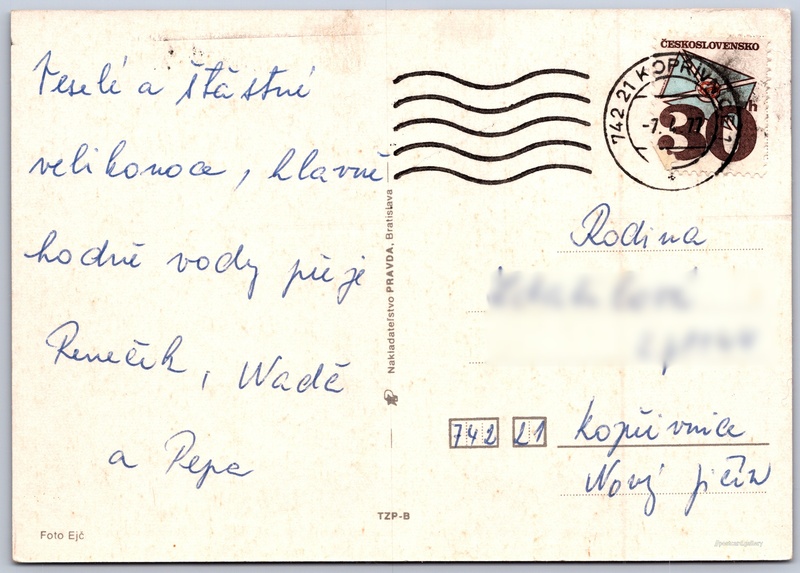 Veselé a štástné
velikonoce, hlavně
hodně vody přeje
Reneček, Naďa
a Pepa
Foto Ejč
TZP-B
Nakladateľstvo PRAVDA, Bratislava
ČESKOSLOVENSKO
30h
742 21 KOPŘIVNICE 1
Rodina
742 21 Kopřivnice
Nový jičín